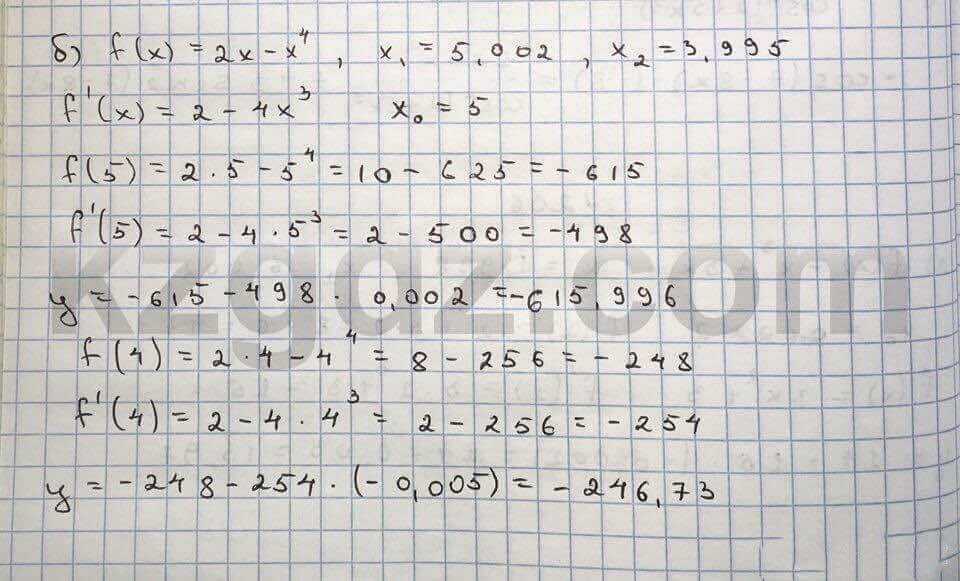 б) f(x) = 2x - x⁴, x₁ = 5,002, x₂ = 3,995
f'(x) = 2 - 4x³ x₀ = 5
f(5) = 2·5 - 5⁴ = 10 - 625 = -615
f'(5) = 2 - 4·5³ = 2 - 500 = -498
y = -615 - 498 · 0,002 = -615,996
f(4) = 2·4 - 4⁴ = 8 - 256 = -248
f'(4) = 2 - 4·4³ = 2 - 256 = -254
y = -248 - 254·(-0,005) = -246,73
kzgdz.com